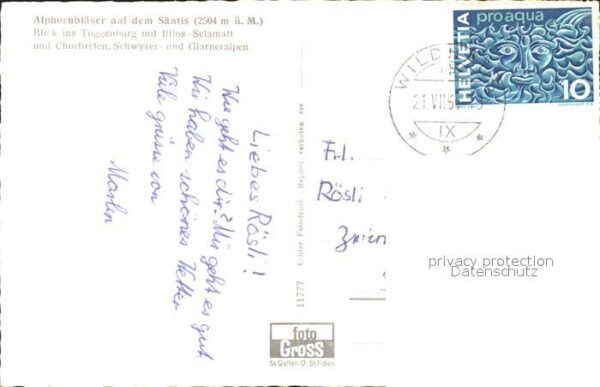 Alphornbläser auf dem Säntis (2504 m ü. M.)
Blick ins Toggenburg mit Iltios-Selamatt
und Churfirsten, Schwyzer- und Glarneralpen
Liebes Rösli!
Wie geht es dir? Mir geht es gut
Wir haben schönes Wetter
Viele grüsse von
Marlin
11777 Echter Fotodruck - Reprod. verboten
foto
Gross
St. Gallen O St. Fiden
HELVETIA
pro aqua
10
WILD
21.VII.
IX
Frl.
Rösli
privacy protection
Datenschutz